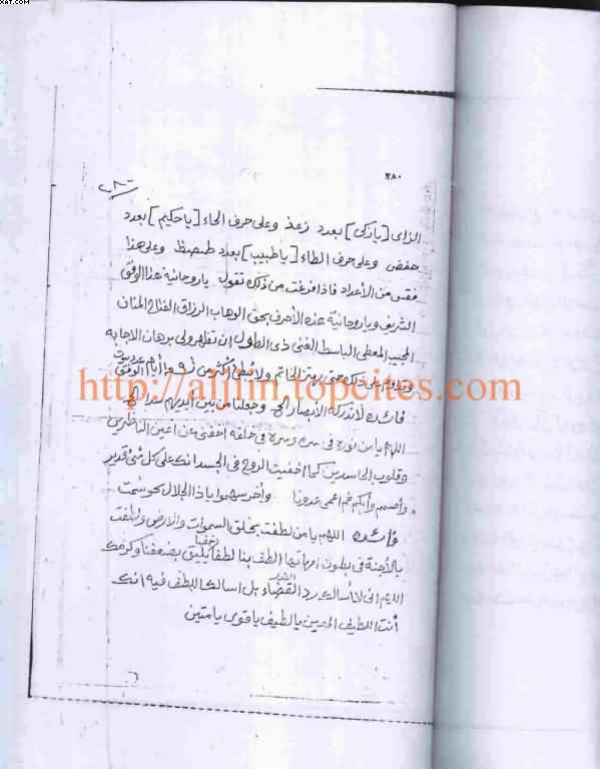 XAT.COM
٢٨٠
الزاى [يازكى] بعدد زعذ وعلى حرف الحاء [ياحكيم] بعدد
حفض وعلى حرف الطاء [ياطبيب] بعدد طصظ وعلى هذا
فقس من الأعداد فاذا فرغت من ذلك تقول ياروحانية هذا الوفق
الشريف وياروحانية هذه الأحرف بحق الوهاب الرزاق الفتاح المنان
المجيب المعطى الباسط الغنى ذى الطول ان تظهر ولى برهان الاجابه
على ذلك حتى يهتز الخاتم ولا
http://aljiin.topcities.com
فائده لاتدركه الأبصار الخ وجعلنا من بين ايديهم سدا الخ
اللهم يامن نوره فى سره وسره فى خلقه اخفنى عن اعين الناظرين
وقلوب الحاسدين كما اخفيت الروح فى الجسد انك على كل شئ قدير
يا ذا الجلال
فائده اللهم يامن لطفت بخلق السموات والارض ولطفت
بالأجنة فى بطون امهاتها الطف بنا لطفا خفيا يليق بضعفنا وكرمك
اللهم انى لا أسالك رد القضاء بل اسالك اللطف فيه انك
أنت اللطيف يالطيف ياقوى يامتين